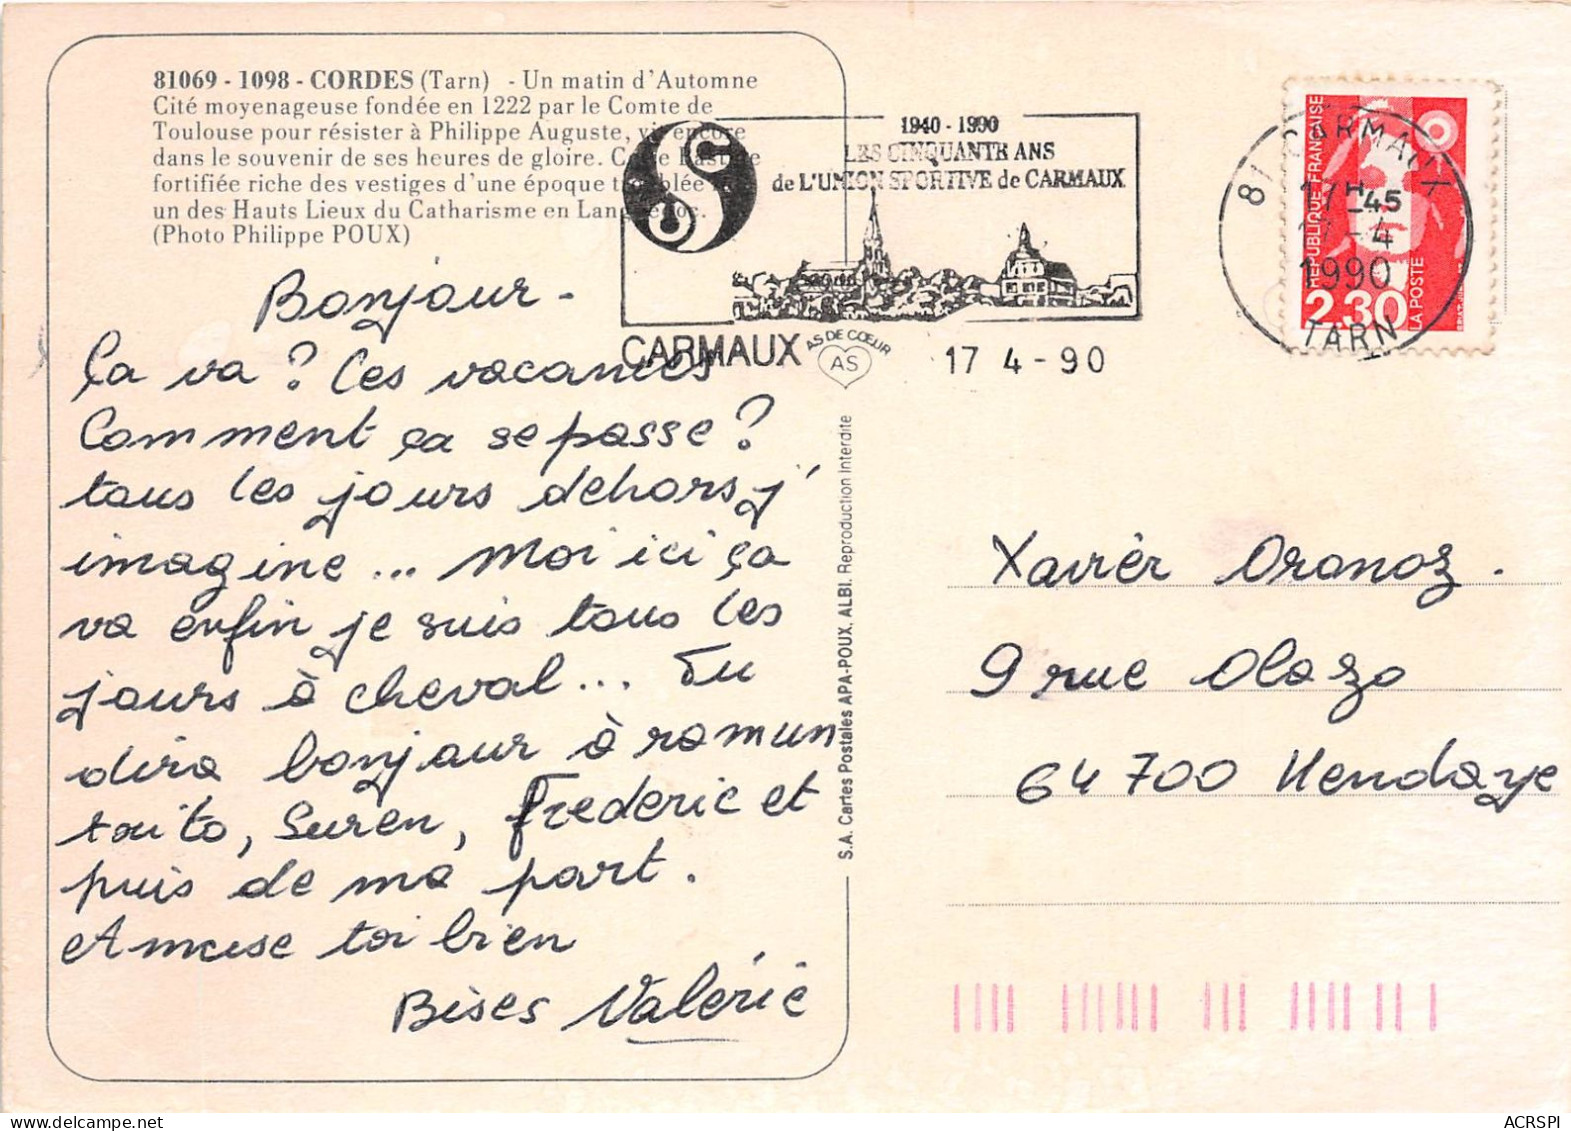 81069 - 1098 - CORDES (Tarn) - Un matin d'Automne
Cité moyenageuse fondée en 1222 par le Comte de
Toulouse pour résister à Philippe Auguste, vit encore
dans le souvenir de ses heures de gloire. Cette Bastide
fortifiée riche des vestiges d'une époque troublée
un des Hauts Lieux du Catharisme en Languedoc.
(Photo Philippe POUX)
1940 - 1990
LES CINQUANTE ANS
de L'UNION SPORTIVE de CARMAUX
CARMAUX
17 4 - 90
AS DE CŒUR
AS
81 CARMAUX
17H45
17 - 4
1990
TARN
REPUBLIQUE FRANÇAISE
2,30
LA POSTE
Bonjour -
Ça va ? Les vacances
Comment ça se passe ?
tous les jours dehors j'
imagine ... Moi ici ça
va enfin je suis tous les
jours à cheval ... Tu
dira bonjour à ramun
toito, Suren, Frederic et
puis de ma part.
Amuse toi bien
Bises Valérie
S.A. Cartes Postales APA-POUX, ALBI. Reproduction Interdite
Xavièr Oranoz.
9 rue Olazo
64700 Hendaye
ACRSPI